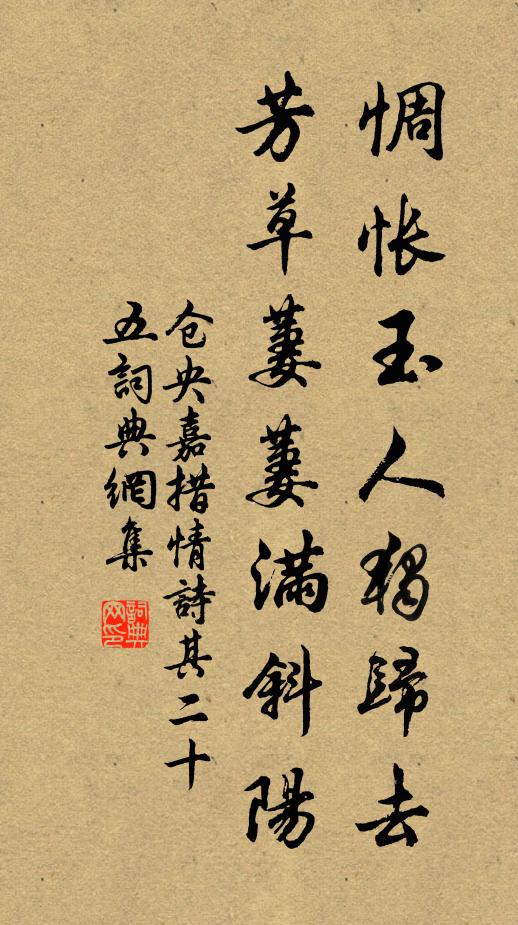 惆悵玉人獨歸去
芳草萋萋滿斜陽
仓央嘉措情詩其二十
五詞典網集
詞典
网印